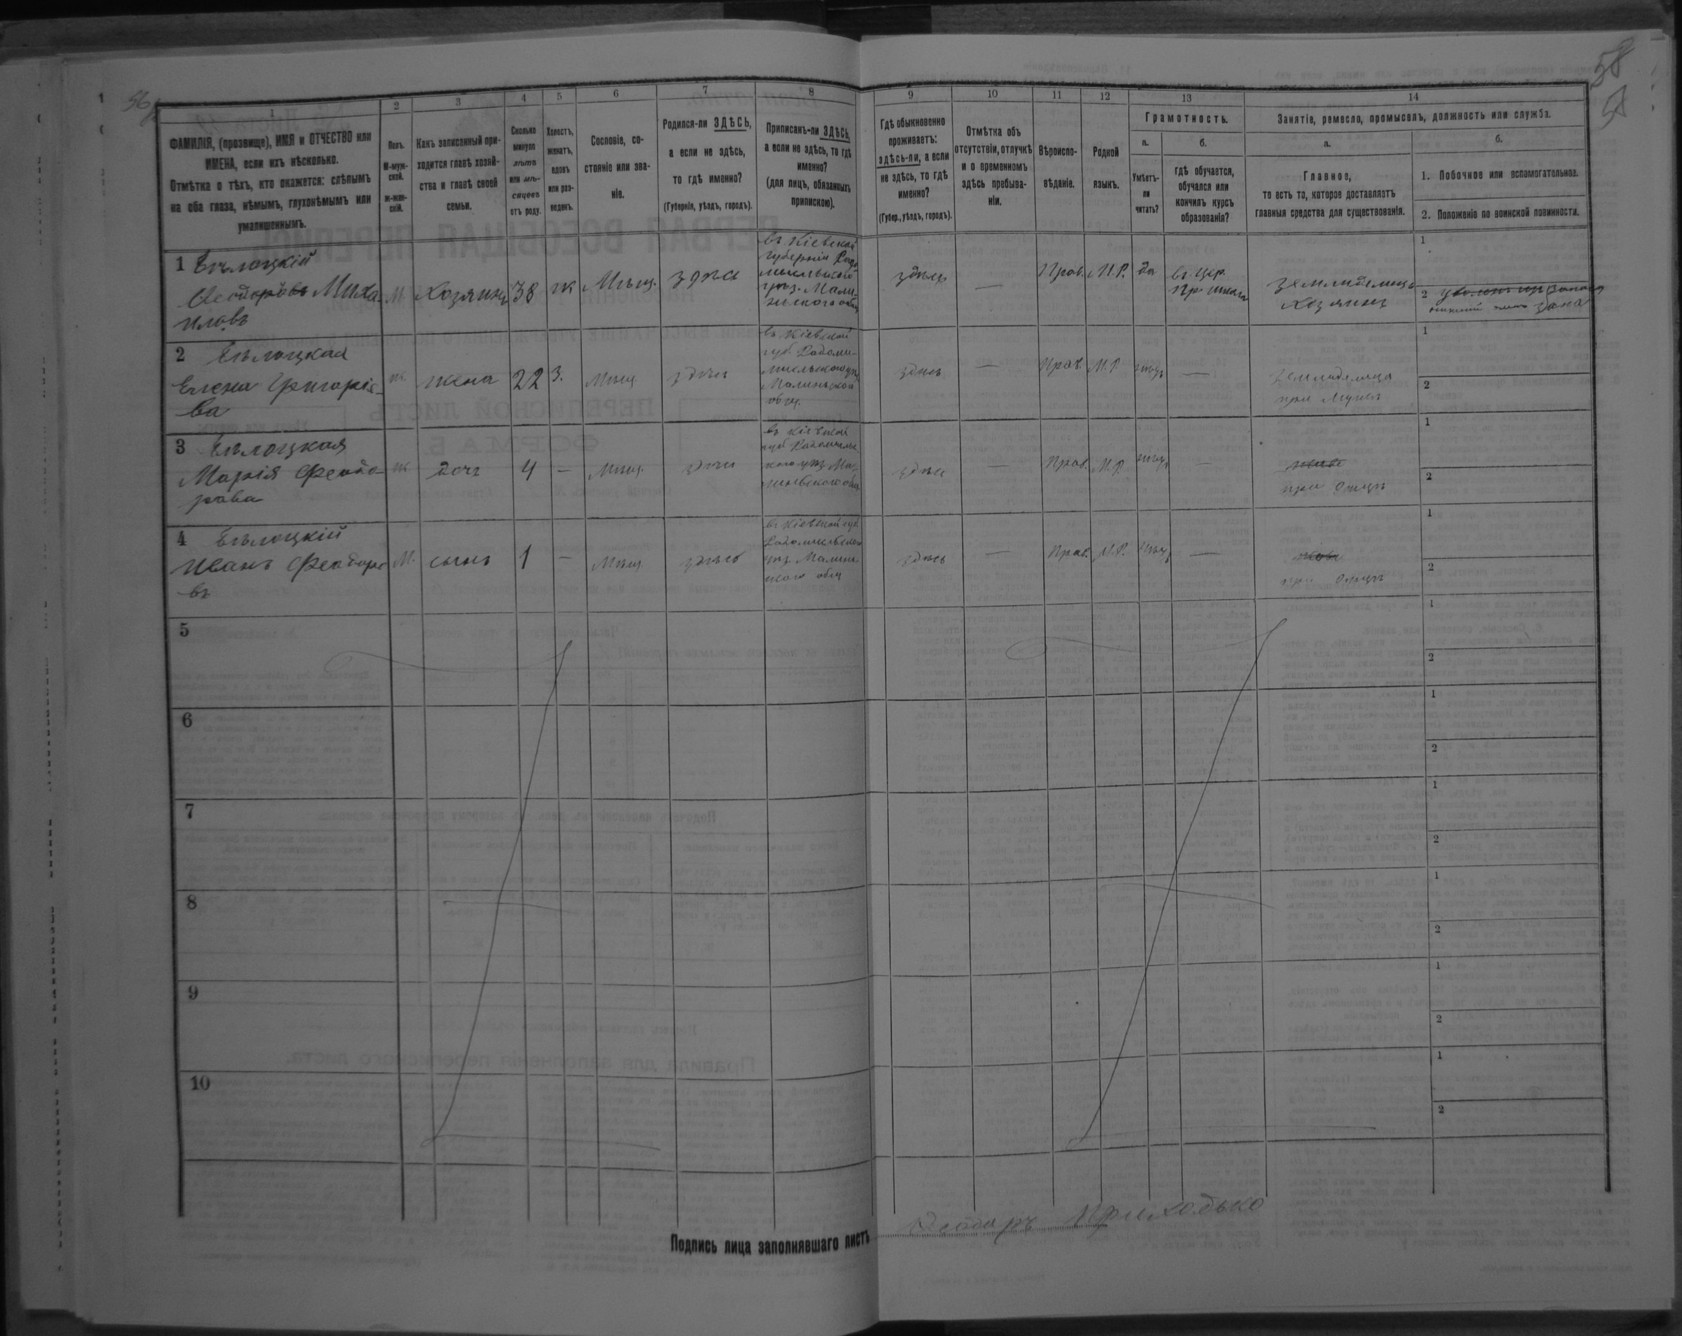 58
56
1
2
3
4
5
6
7
8
9
10
11
12
13
14
ФАМИЛІЯ, (прозвище), ИМЯ и ОТЧЕСТВО или
ИМЕНА, если ихъ нѣсколько.
Отмѣтка о тѣхъ, кто окажется: слѣпымъ
на оба глаза, нѣмымъ, глухонѣмымъ или
умалишеннымъ.
Полъ
М-муж-
ской.
ж-жен-
скій.
Какъ записанный при-
ходится главѣ хозяй-
ства и главѣ своей
семьи.
Сколько
минуло
лѣтъ
или мѣ-
сяцевъ
отъ роду.
Холостъ,
женатъ,
вдовъ
или раз-
веденъ.
Сословіе, со-
стояніе или зва-
ніе.
Родился-ли ЗДѢСЬ,
а если не здѣсь,
то гдѣ именно?
(Губернія, уѣздъ, городъ).
Приписанъ-ли ЗДѢСЬ,
а если не здѣсь, то гдѣ
именно?
(для лицъ, обязанныхъ
припискою).
Гдѣ обыкновенно
проживаетъ:
здѣсь-ли, а если
не здѣсь, то гдѣ
именно?
(Губер., уѣздъ, городъ).
Отмѣтка объ
отсутствіи, отлучкѣ
и о временномъ
здѣсь пребыва-
ніи.
Вѣроиспо-
вѣданіе.
Родной
языкъ.
Грамотность.
а.
Умѣетъ-
ли
читать?
б.
гдѣ обучается,
обучался или
кончилъ курсъ
образованія?
Занятіе, ремесло, промыселъ, должность или служба.
а.
Главное,
то есть то, которое доставляетъ
главныя средства для существованія.
б.
1. Побочное или вспомогательное.
2. Положеніе по воинской повинности.
1 Бѣлоцкій
Феодоръ Миха
иловъ
М
Хозяинъ
38
ж
Мѣщ.
здѣсь
въ Кіевской
губерніи Радо
мысльского
уѣз. Мали
нского общ
здѣсь
—
Прав.
М.Р.
да
въ цер.
пр. школѣ
Земледѣлецъ
Хозяинъ
1
2
2 Бѣлоцкая
Елена Григоріе
ва
ж
жена
22
з.
Мѣщ
здѣсь
въ Кіевской
губ. Радомы-
Малинского
общ.
здѣсь
—
Прав.
М.Р.
—
Земледелица
при Мужѣ
1
2
3 Бѣлоцкая
Марія Феодо
рова
ж
дочь
4
—
Мѣщ
здѣсь
въ Кіевской
здѣсь
—
Прав.
М.Р.
—
при Отцѣ
1
2
4 Бѣлоцкій
Иванъ Феодоро
въ
М.
сынъ
1
—
Мѣщ
здѣсь
въ Кіевской губ
здѣсь
—
Прав.
М.Р.
—
при Отцѣ
1
2
5
1
2
6
1
2
7
1
2
8
1
2
9
1
2
10
1
2
Подпись лица заполнявшаго листъ
Феодоръ Приходько